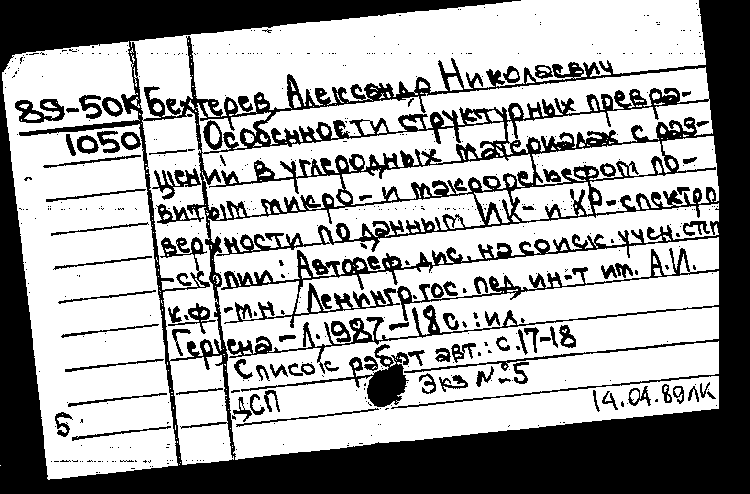 89-50К Бехтерев, Александр Николаевич
1050 Особенности структурных превра-
щений в углеродных материалах с раз-
витым микро- и макрорельефом по-
верхности по данным ИК- и КР-спектро
-скопии: Автореф. дис. на соиск. учен. степ
к.ф.-м.н. / Ленингр. гос. пед. ин-т им. А.И.
Герцена. - Л. 1987. - 18 с.: ил.
Список работ авт.: с. 17-18
Экз № 5
СП
Б
14.04.89 ЛК